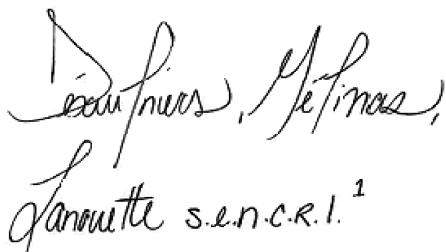 Désaulniers, Gélinas,
Lanouette s.e.n.c.r.l.¹